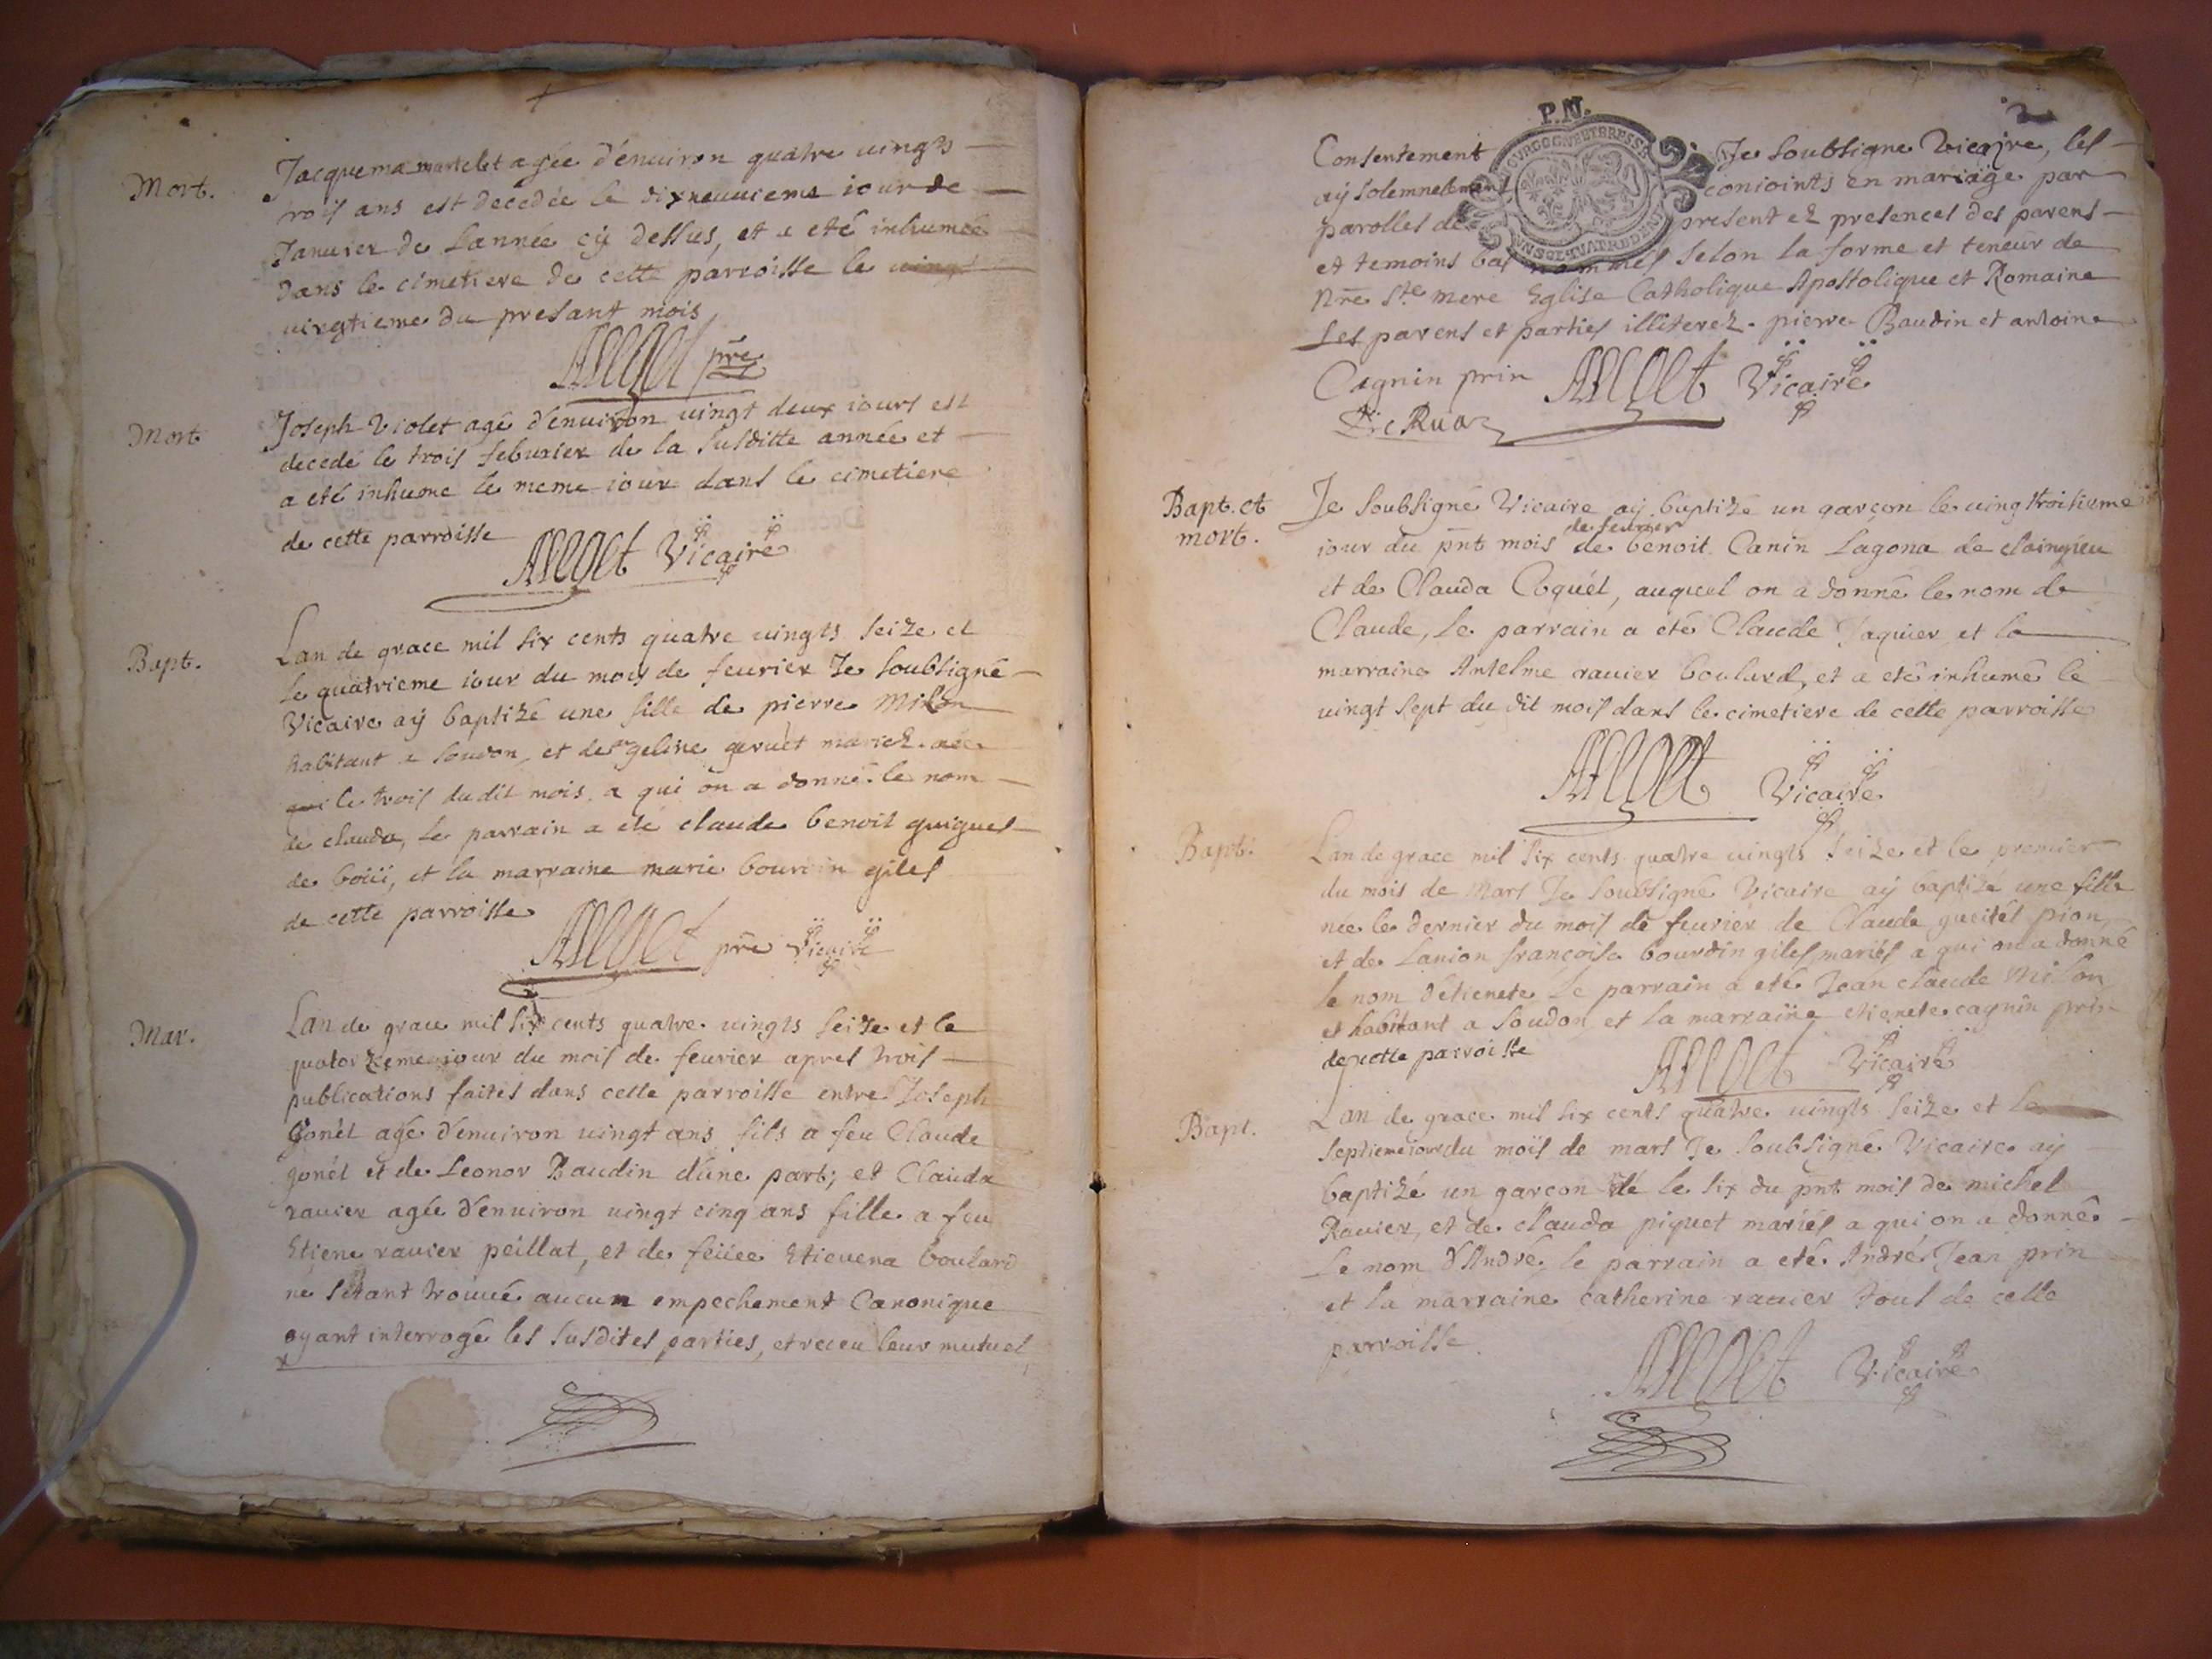 Mort.
Jacquema martelet agée d'enuiron quatre uingts
trois ans est decedée le dixneuuieme iour de
Januier de Lannée cÿ dessus, et a eté inhumée
dans le cimetiere de cette parroisse le uingt
uingtieme du presant mois
pre
Mort
Joseph Violet agé d'enuiron uingt deux iours est
decedé le trois feburier de la susditte année et
a eté inhumé le meme iour dans le cimetiere
de cette parroisse
Vicaire
Bapt.
Lan de grace mil six cents quatre uingts seize et
le quatrieme iour du mois de feurier Je soubsigné
Vicaire aÿ baptizé une fille de pierre Milon
habitant a soudon, et de geline geruet mariez. née
le trois dudit mois. a qui on a donné le nom
de clauda, le parrain a eté claude benoit guiguet
de boüi, et la marraine marie bourdin giles
de cette parroisse
pre Vicaire
Mar.
Lan de grace mil six cents quatre. uingts seize et le
quatorzeme iour du mois de feurier apres trois
publications faites dans cette parroisse entre Joseph
gonet agé d'enuiron uingt ans fils a feu Claude
gonét et de Leonor Baudin d'une part; et Clauda
rauier agée d'enuiron uingt cinq ans fille a feu
Etiene rauier peillat, et de feüee Etieuena boulard
ne s'etant trouué aucun empechement Canonique
ayant interrogé les susdites parties, et receu leur mutuel
P.N.
2
Consentement Je soubsigne Vicaire, les
aÿ solemnellement conioints en mariage par
parolles de present ez presences des parens
et temoins bas nommes selon la forme et teneur de
Nre Ste mere Eglise Catholique Apostolique et Romaine
Les parens et parties illiterez. pierre Baudin et antoine
Cagnin prin Vicaire
De Ruaz
Bapt. et
mort.
Je soubsigné Vicaire aÿ baptizé un garçon le uingttroisieme
de feurier
iour du pnt mois de benoit Canin Lagona de cloingieu
et de Clauda Coquét, auquel on a donné le nom de
Claude, le parrain a eté Claude Jaquier et la
marraine Antelme rauier boulard, et a eté inhumé le
uingt sept du dit mois dans le cimetiere de cette parroisse
Vicaire
Bapt.
Lan de grace mil six cents quatre uingts seize et le premier
du mois de Mars Je soubsigné Vicaire aÿ baptizé une fille
née le dernier du mois de feurier de Claude pion
et de Lanion françoise bourdin giles mariés a qui on a donné
le nom d'etienete Le parrain a eté Jean claude Milon
et habitant a soudon et la marraine etienete cagnin prin
de cette parroisse
Vicaire
Bapt.
Lan de grace mil six cents quatre uingts seize et le
septieme iour du mois de mars Je soubsigné Vicaire aÿ
baptizé un garcon né le six du pnt mois de michel
Rauier, et de clauda piquet mariés a qui on a donné
Le nom d'André, le parrain a eté André Jean prin
et la marraine catherine rauier tous de cette
parroisse
Vicaire